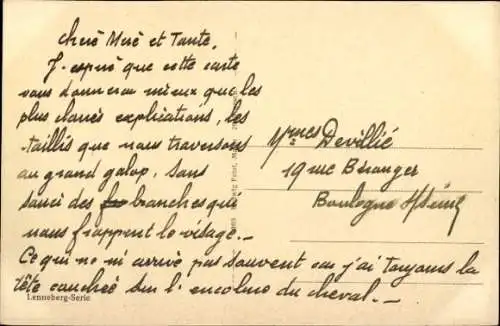 Chère Mère et Tante,
J'espère que cette carte
vous donnera mieux que les
plus claires explications, les
taillis que nous traversons
au grand galop, sans
souci des branches qui
nous frappent le visage. —
Ce qui ne m'arrive pas souvent car j'ai toujours la
tête couchée sur l'encolure du cheval. —
Lenneberg-Serie
Mmes Devillié
19 rue Béranger
Boulogne s/Seine